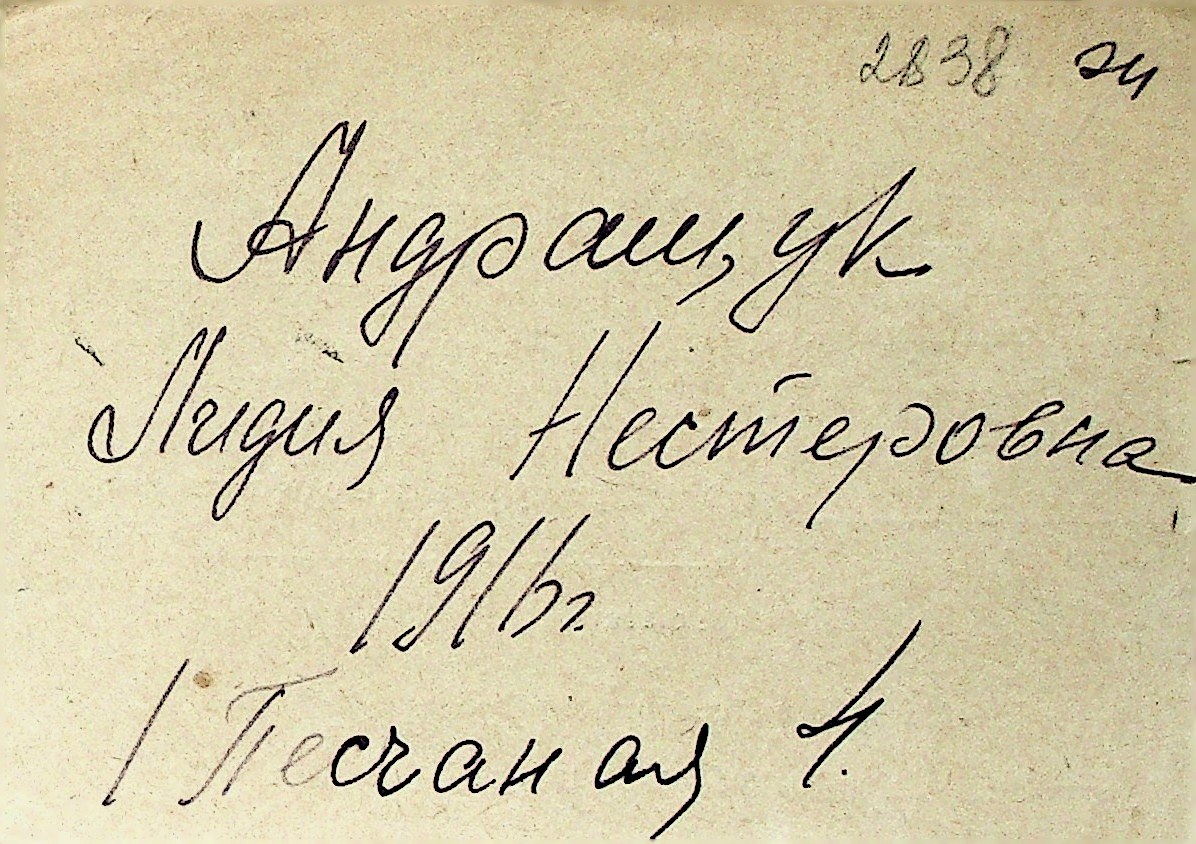 2838
Андращук
Лидия Нестеровна
1916г.
1 Песчаная 4.